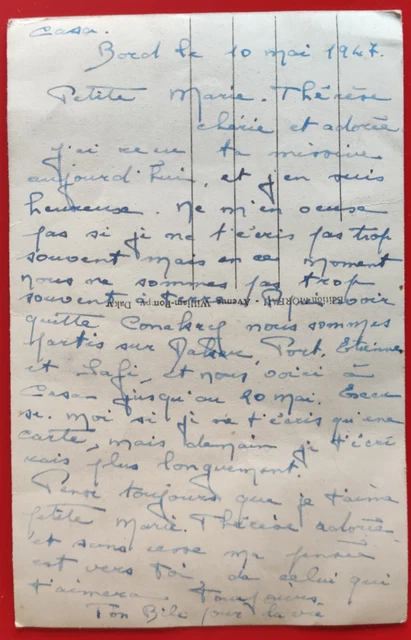 Casa.
Bord le 10 mai 1947.
Petite Marie-Thérèse
chérie et adorée
j'ai recu ta missive
aujourd'hui, et j'en suis
heureuse. Ne m'en veuse
pas si je ne t'écris pas trop
souvent mais en ce moment
nous ne sommes pas trop
souvent à terre. Après avoir
quitté Conakry nous sommes
partis sur Dakar, Port. Etienne
et Safi, et nous voici à
Casa jusqu'au 20 mai. Excu
se. moi si je ne t'écris qu'une
carte, mais demain je t'écri
rais plus longuement.
Pense toujours que je t'aime
petite Marie. Thérèse adorée
et sans cesse ma pensée
est vers toi, de celui qui
t'aimera toujours.
Ton Bile pour la vie
Edition MOREAU - Avenue William-Ponty, Dakar